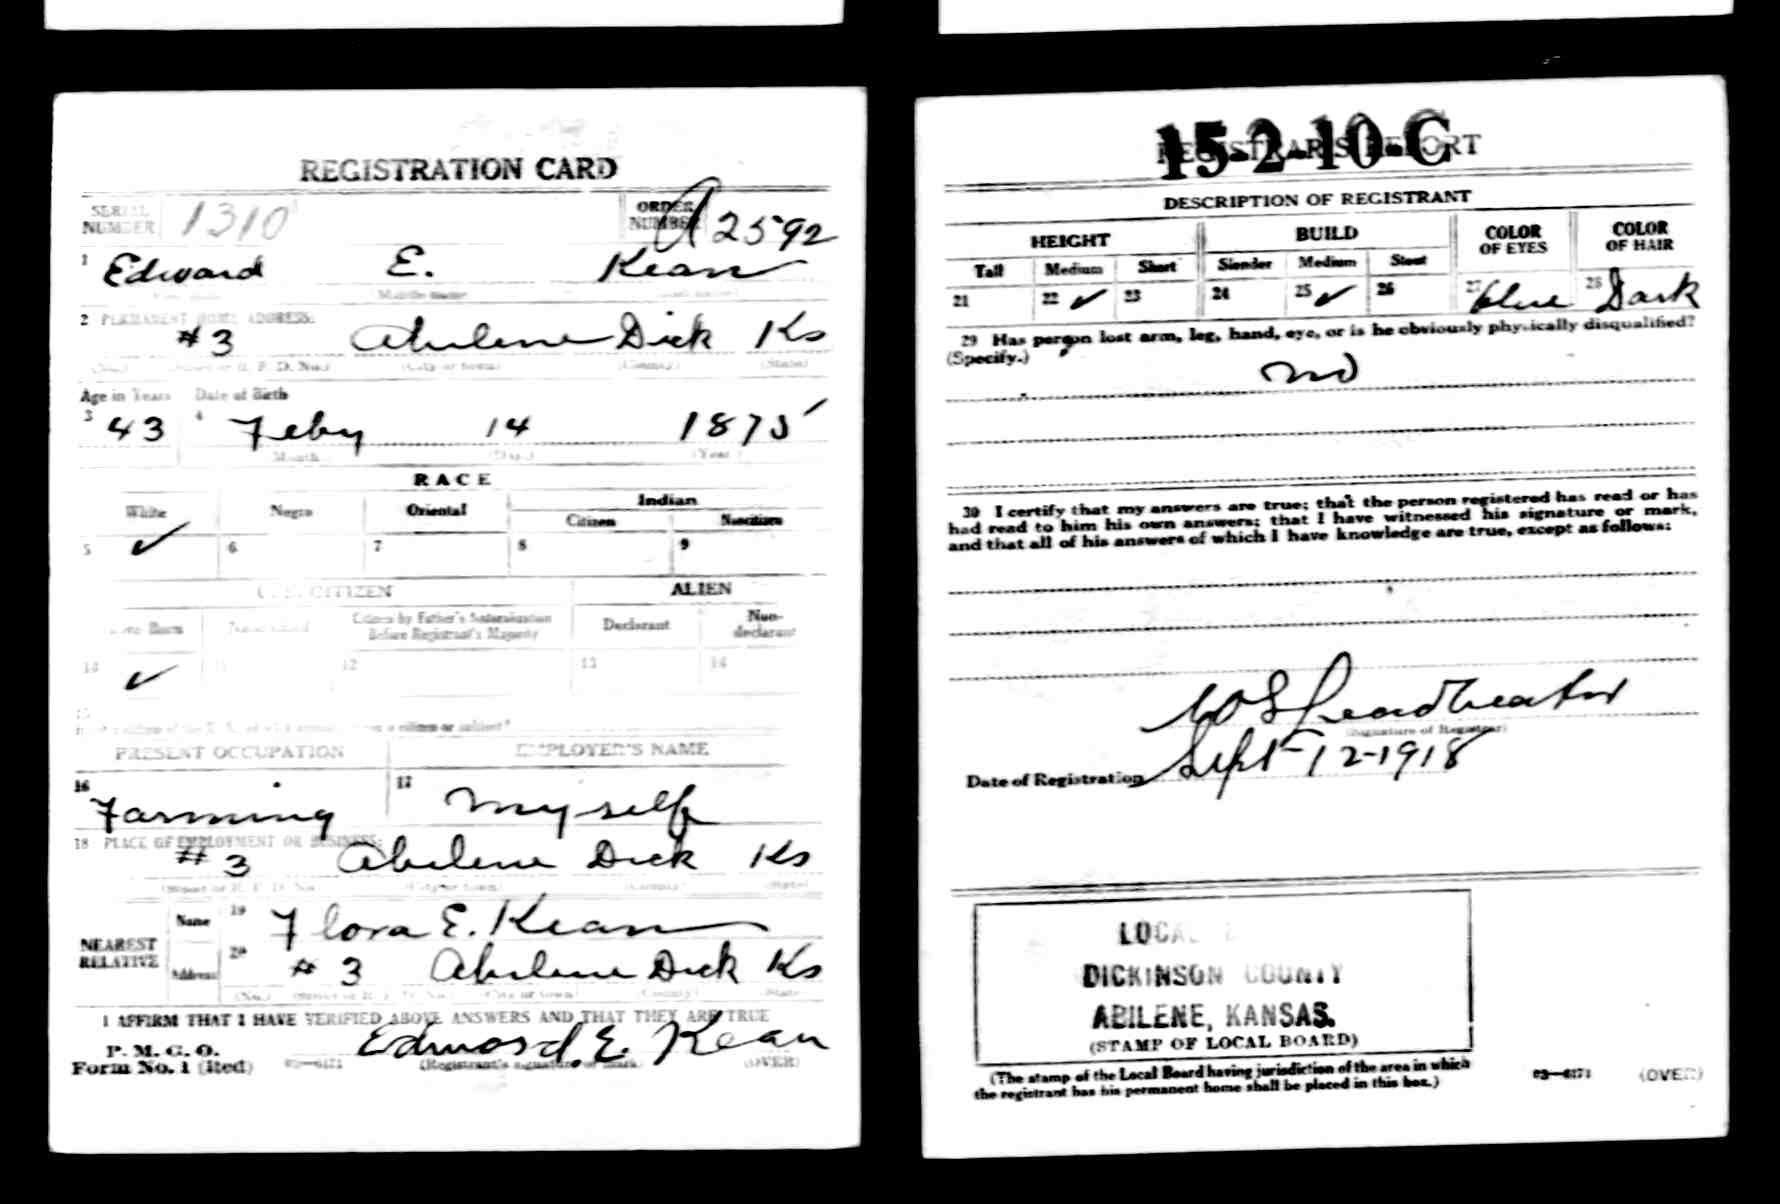 REGISTRATION CARD
SERIAL NUMBER 1310 ORDER NUMBER A 2592
1 Edward E. Kean
Middle name
2 PERMANENT HOME ADDRESS:
#3 Abilene Dick Ks
(No.) (Street or R. F. D. No.) (City or town) (County) (State)
Age in Years Date of Birth
3 43 4 Feby 14 1875
Month (Day) (Year)
RACE
White Negro Oriental Indian
Citizen Noncitizen
5 ✓ 6 7 8 9
U. S. CITIZEN ALIEN
Native Born Naturalized Citizen by Father's Naturalization Before Registrant's Majority Declarant Non-declarant
10 ✓ 11 12 13 14
15
citizen or subject?
PRESENT OCCUPATION EMPLOYER'S NAME
16 Farming 17 Myself
18 PLACE OF EMPLOYMENT OR BUSINESS:
#3 Abilene Dick Ks
(Street or R. F. D. No.) (City or town) (County) (State)
NEAREST RELATIVE Name 19 Flora E. Kean
Address 20 #3 Abilene Dick Ks
(No.) (Street or R. F. D. No.) (City or town) (County) (State)
I AFFIRM THAT I HAVE VERIFIED ABOVE ANSWERS AND THAT THEY ARE TRUE
P. M. G. O.
Form No. 1 (Red) 03—6171 Edward E. Kean
(Registrant's signature or mark) (OVER)
15-2-10-C
REGISTRAR'S REPORT
DESCRIPTION OF REGISTRANT
HEIGHT BUILD COLOR OF EYES COLOR OF HAIR
Tall Medium Short Slender Medium Stout
21 22 ✓ 23 24 25 ✓ 26 27 blue 28 Dark
29 Has person lost arm, leg, hand, eye, or is he obviously physically disqualified?
(Specify.)
no
30 I certify that my answers are true; that the person registered has read or has
had read to him his own answers; that I have witnessed his signature or mark,
and that all of his answers of which I have knowledge are true, except as follows:
(Signature of Registrar)
Date of Registration Sept-12-1918
LOCAL
DICKINSON COUNTY
ABILENE, KANSAS.
(STAMP OF LOCAL BOARD)
(The stamp of the Local Board having jurisdiction of the area in which
the registrant has his permanent home shall be placed in this box.)
03—6171 (OVER)